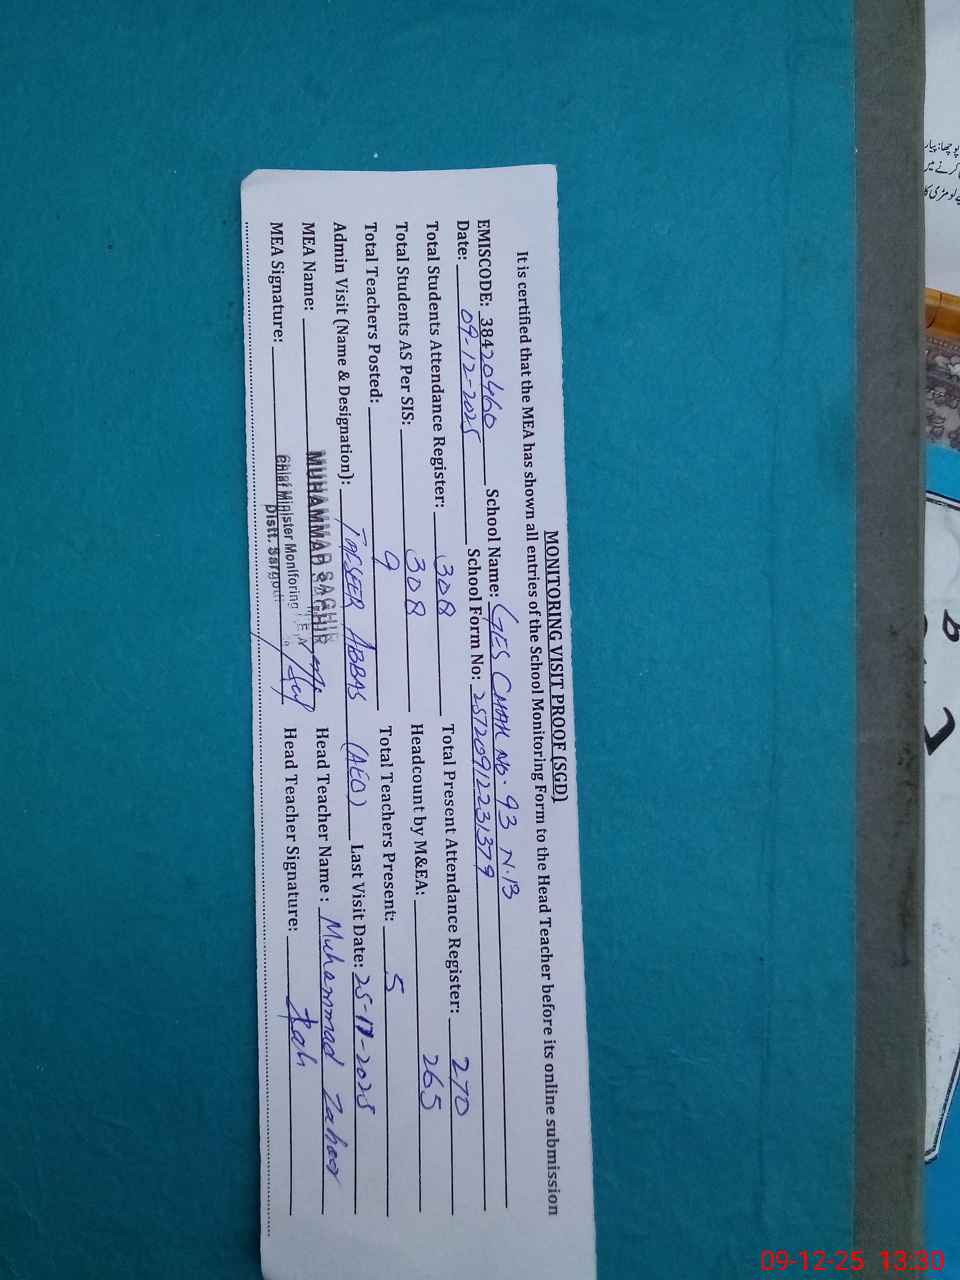 MONITORING VISIT PROOF (SGD)
It is certified that the MEA has shown all entries of the School Monitoring Form to the Head Teacher before its online submission
EMISCODE: 38420460 School Name: GES CHAK NO. 93 N.B
Date: 09-12-2025 School Form No: 25120912231379
Total Students Attendance Register: 308 Total Present Attendance Register: 270
Total Students AS Per SIS: 308 Headcount by M&EA: 265
Total Teachers Posted: 9 Total Teachers Present: 5
Admin Visit (Name & Designation): TAFSEER ABBAS (AEO) Last Visit Date: 25-11-2025
MEA Name: MUHAMMAD SAGHIR Head Teacher Name : Muhammad Zahoor
MEA Signature: Chief Minister Monitoring Head Teacher Signature: Zah
Distt. Sargodh
پوچھا: پیار
کرنے میں
لومڑی کا
09-12-25 13:30